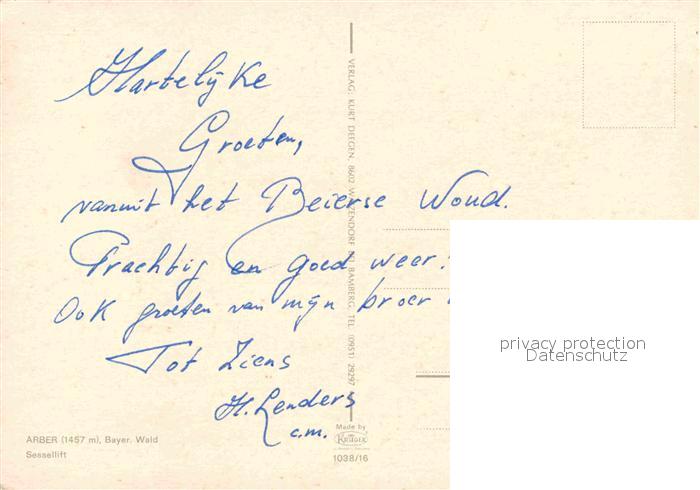 Hartelijke
Groeten,
vanuit het Beierse Woud.
Prachtig en goed weer.
Ook groeten van mijn broer
Tot Ziens
H. Lenders
c.m.
ARBER (1457 m), Bayer. Wald
Sessellift
VERLAG: KURT DEEGEN, 8602 BAMBERG, TEL. (0951) 29297
Made by
KRÜGER
1038/16
privacy protection
Datenschutz